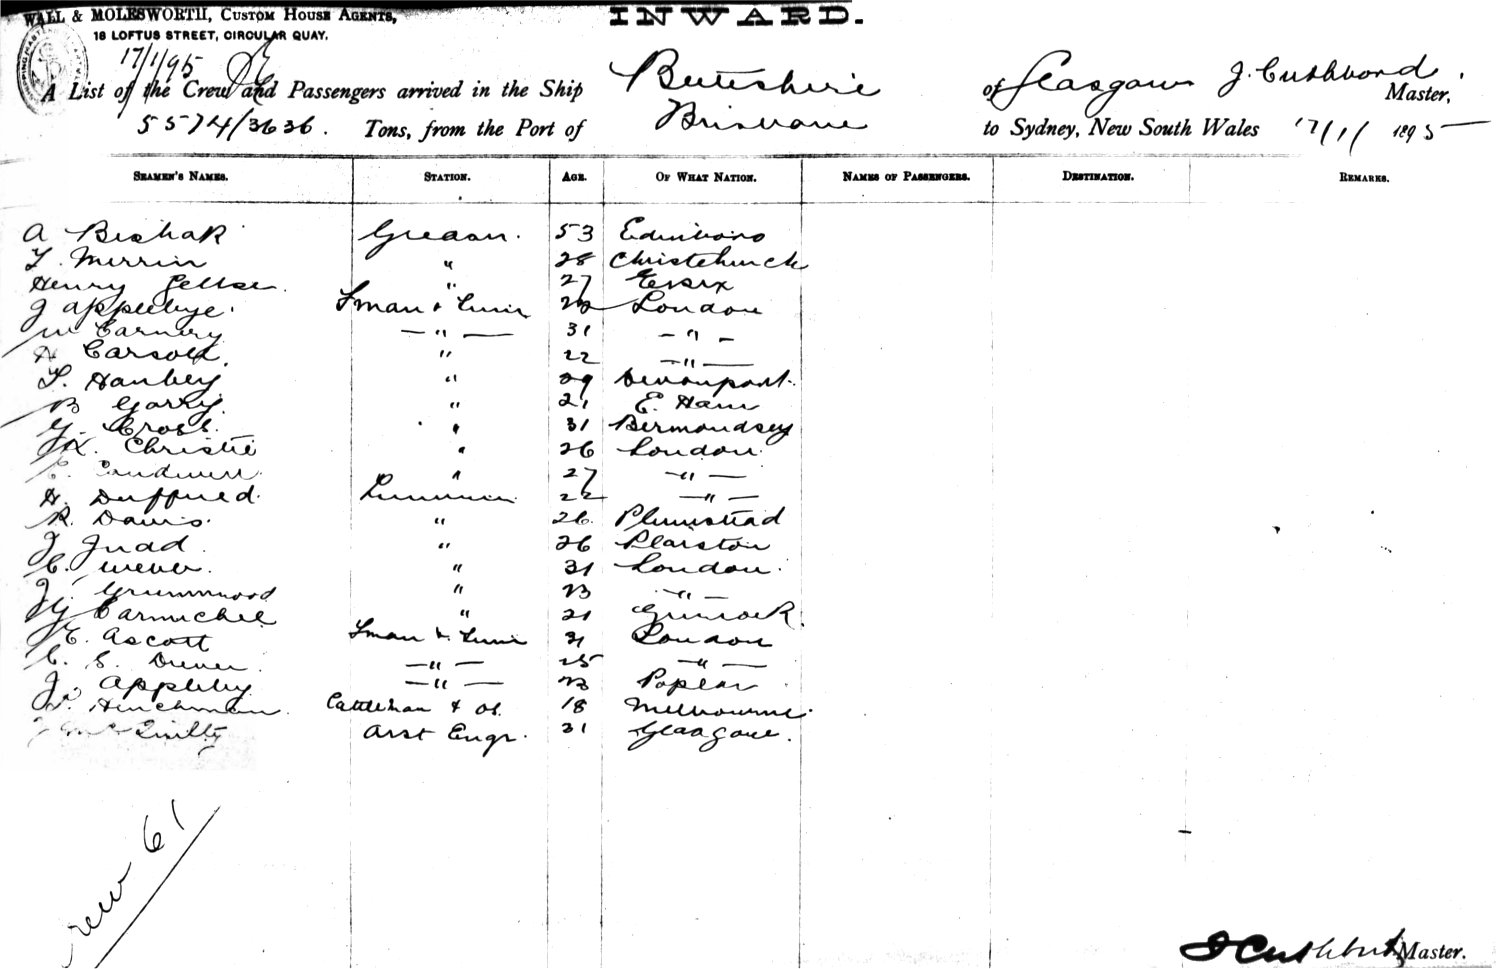 WALL & MOLESWORTH, CUSTOM HOUSE AGENTS,
18 LOFTUS STREET, CIRCULAR QUAY.
INWARD.
17/1/95
A List of the Crew and Passengers arrived in the Ship Buteshire of Glasgow J. Cuthbord Master,
5574/3636. Tons, from the Port of Brisbane to Sydney, New South Wales 17/1/ 1895
SEAMEN'S NAMES. STATION. AGE. OF WHAT NATION. NAMES OF PASSENGERS. DESTINATION. REMARKS.
A Bishop Greaser. 53 Edinboro
T. Merrin " 28 Christchurch
Henry " 27 Essex
J Applebye. Fman & Trim 23 London
W Carnery — " — 31 — " —
H Carsold. " 22 — " —
T. Hanbey " 29 Devonport.
B Garry. " 21 E. Ham
G. Cross. " 31 Bermondsey
Christie " 26 London
" 27 — " —
H. Duffued. 22 — " —
R. Davis. " 26. Plumstead
J Judd. " 26 Plaistow
C. " 31 London.
J. Grummwood " 23 — " —
J G Carmichel " 21 Grinock.
E. Ascott Fman & Trim 21 London
C. S. Drever. — " — 25 — " —
J. Appleby — " — 23 Poplar
W. Hinchman. Cattleman & os. 18 Melbourne.
J McQuilty Asst Engr. 31 Glasgow.
Crew 61
J Cuthbert Master.